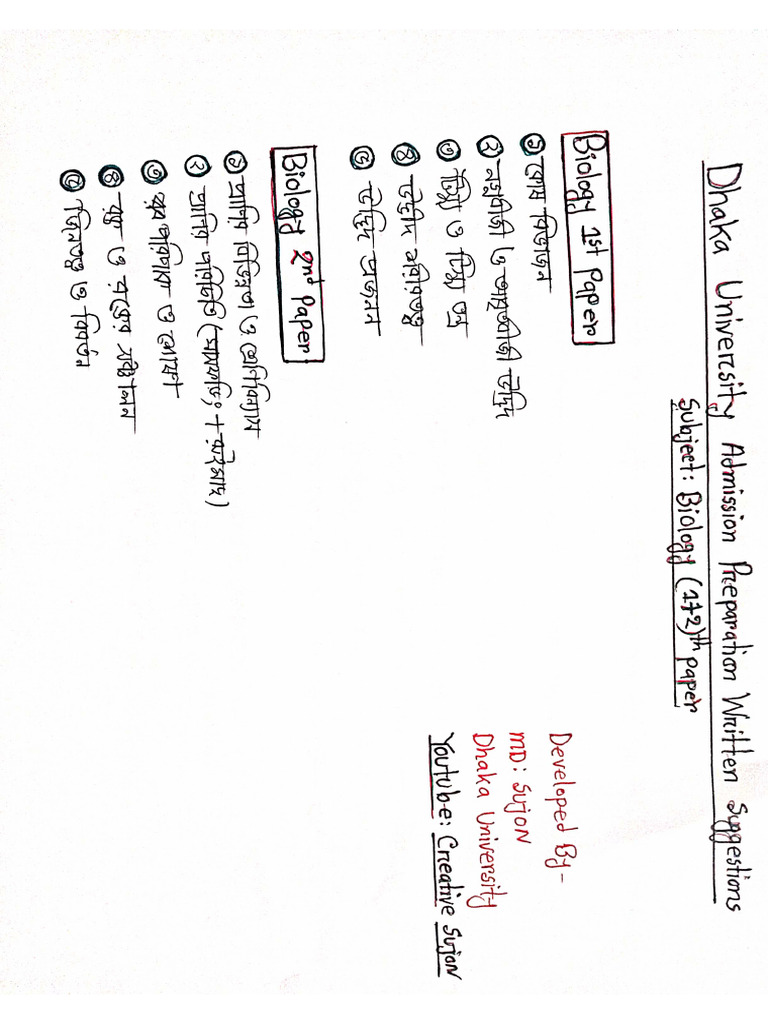 Dhaka University Admission Preparation Written Suggestions
Subject: Biology (1+2)th paper
Biology 1st Paper
১ কোষ বিভাজন
২ নগ্নবীজী ও আবৃতবীজী উদ্ভিদ
৩ টিস্যু ও টিস্যু তন্ত্র
৪ উদ্ভিদ শারীরতত্ত্ব
৫ উদ্ভিদ প্রজনন
Biology 2nd Paper
১ প্রাণির বিভিন্নতা ও শ্রেণিবিন্যাস
২ প্রাণির পরিচিতি (ঘাসফড়িং + রুইমাছ)
৩ খাদ্য পরিপাক ও শোষণ
৪ রক্ত ও রক্তের সঞ্চালন
৫ জিনতত্ত্ব ও বিবর্তন
Developed By-
MD: Sujon
Dhaka University
Youtube: Creative Sujon